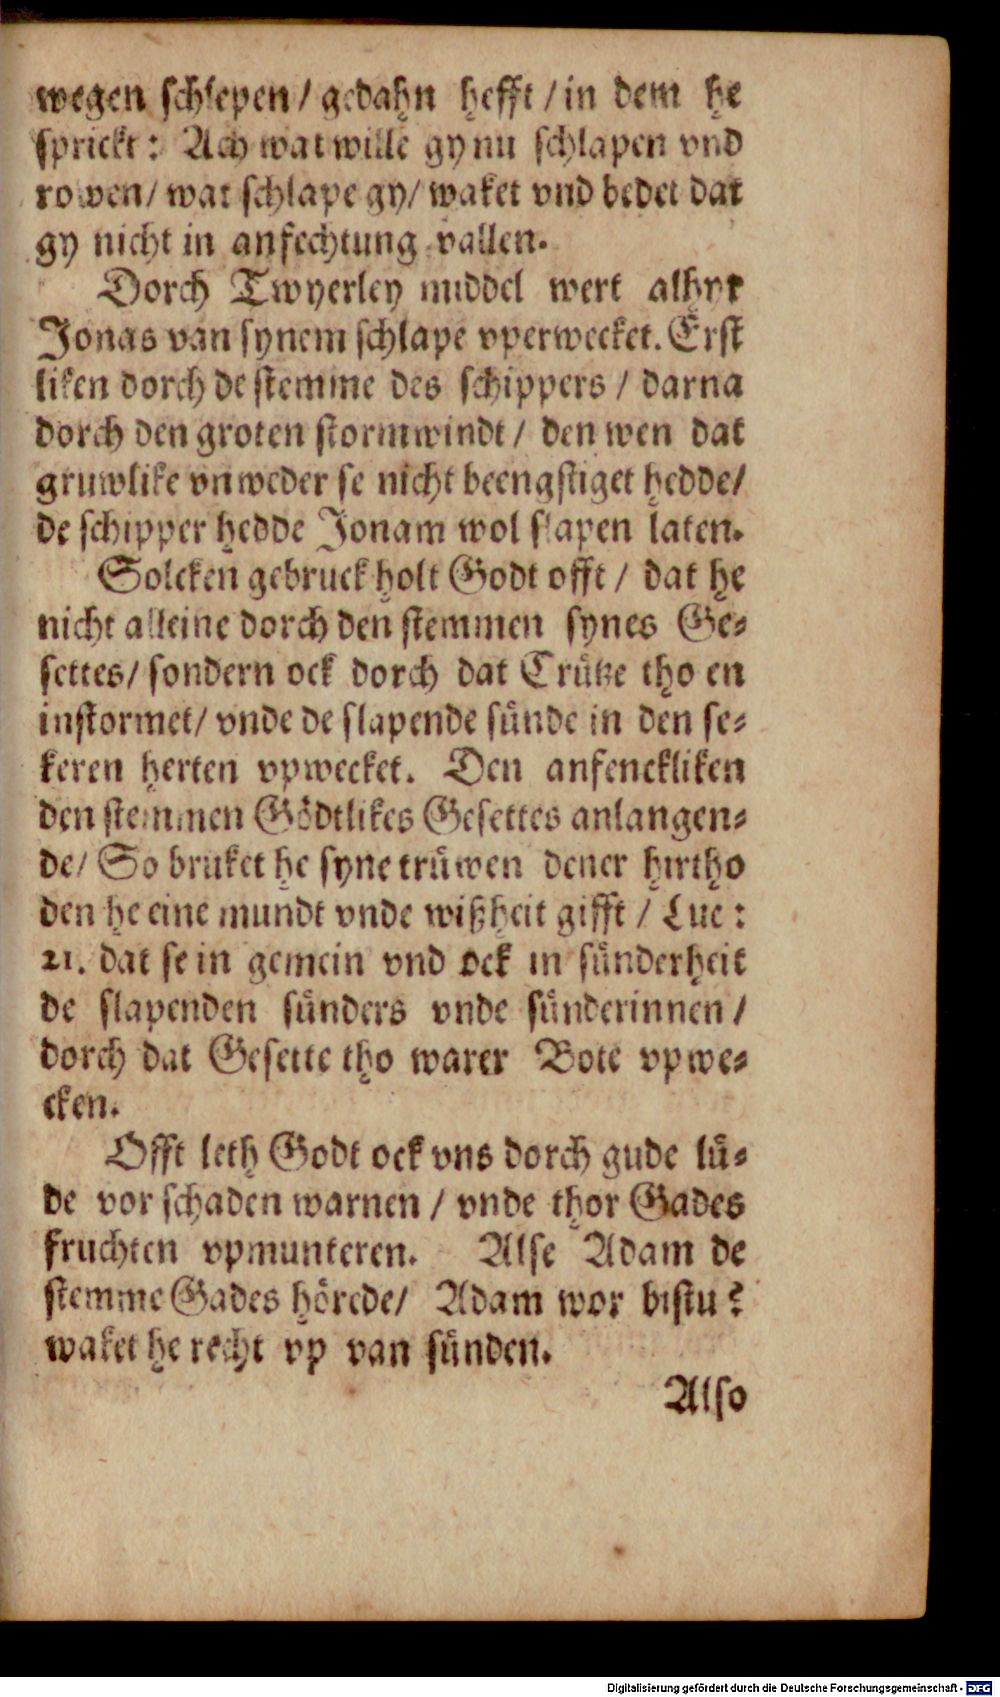 wegen schlepen / gedahn hefft / in dem he
sprickt: Ach wat wille gy nu schlapen vnd
rowen / wat schlape gy / waket vnd bedet dat
gy nicht in anfechtung vallen.
Dorch Twyerley middel wert alhyr
Jonas van synem schlape vperwecket. Erst
liken dorch de stemme des schippers / darna
dorch den groten stormwindt / den wen dat
gruwlike vnweder se nicht beengstiget hedde /
de schipper hedde Jonam wol slapen laten.
Solcken gebruck holt Godt offt / dat he
nicht alleine dorch den stemmen synes Ge-
settes / sondern ock dorch dat Crütze tho en
instormet / vnde de slapende sünde in den se-
keren herten vpwecket. Den anfenckliken
den stemmen Gödtlikes Gesettes anlangen-
de / So bruket he syne trüwen dener hirtho
den he eine mundt vnde wißheit gifft / Luc:
21. dat se in gemein vnd ock in sünderheit
de slapenden sünders vnde sünderinnen /
dorch dat Gesette tho warer Bote vpwe-
cken.
Offt leth Godt ock vns dorch gude lü-
de vor schaden warnen / vnde thor Gades
fruchten vpmunteren. Alse Adam de
stemme Gades hörede / Adam wor bistu?
waket he recht vp van sünden.
Also
Digitalisierung gefördert durch die Deutsche Forschungsgemeinschaft - DFG